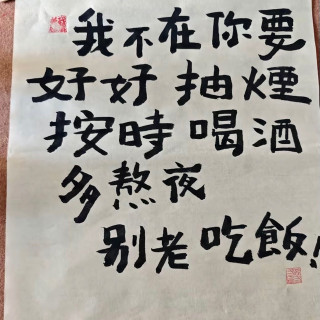 我不在你要
好好抽煙
按時喝酒
多熬夜
别老吃飯!